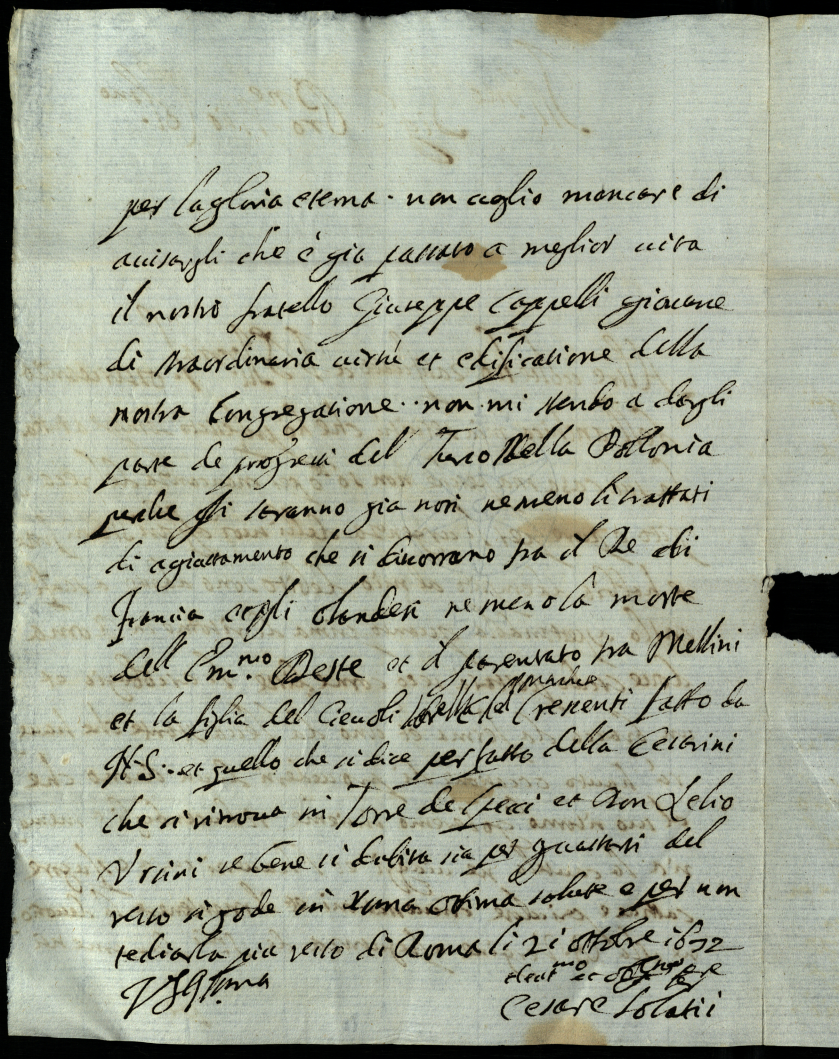 per la gloria eterna. non voglio mancare di
avisargli che è gia passato a meglior vita
il nostro fratello Giuseppe Cappelli giovane
di straordinaria virtù et edificatione della
nostra Congregatione. non mi stendo a dargli
parte de progressi del Turco Nella Pollonia
perche gli saranno gia noti ne meno li trattati
di agiustamento che si discorrano tra il Re di
Francia e gli Olandesi ne meno la morte
dell Em.mo Deste et il parentato tra Mellini
et la figlia del Cievoli sorella del Marchese Crescenti fatto da
N.S. et quello che si dice per fatto della Cesarini
che si ritrova in Torre de Speci et Don Lelio
Ursini se bene si dubita sia per guastarsi del
resto si gode in Roma ottima salute e per non
tediarla piu resto di Roma li 21 ottobre 1672
VS Ill.ma
devot.mo et Ser.re
Cesare Solatii